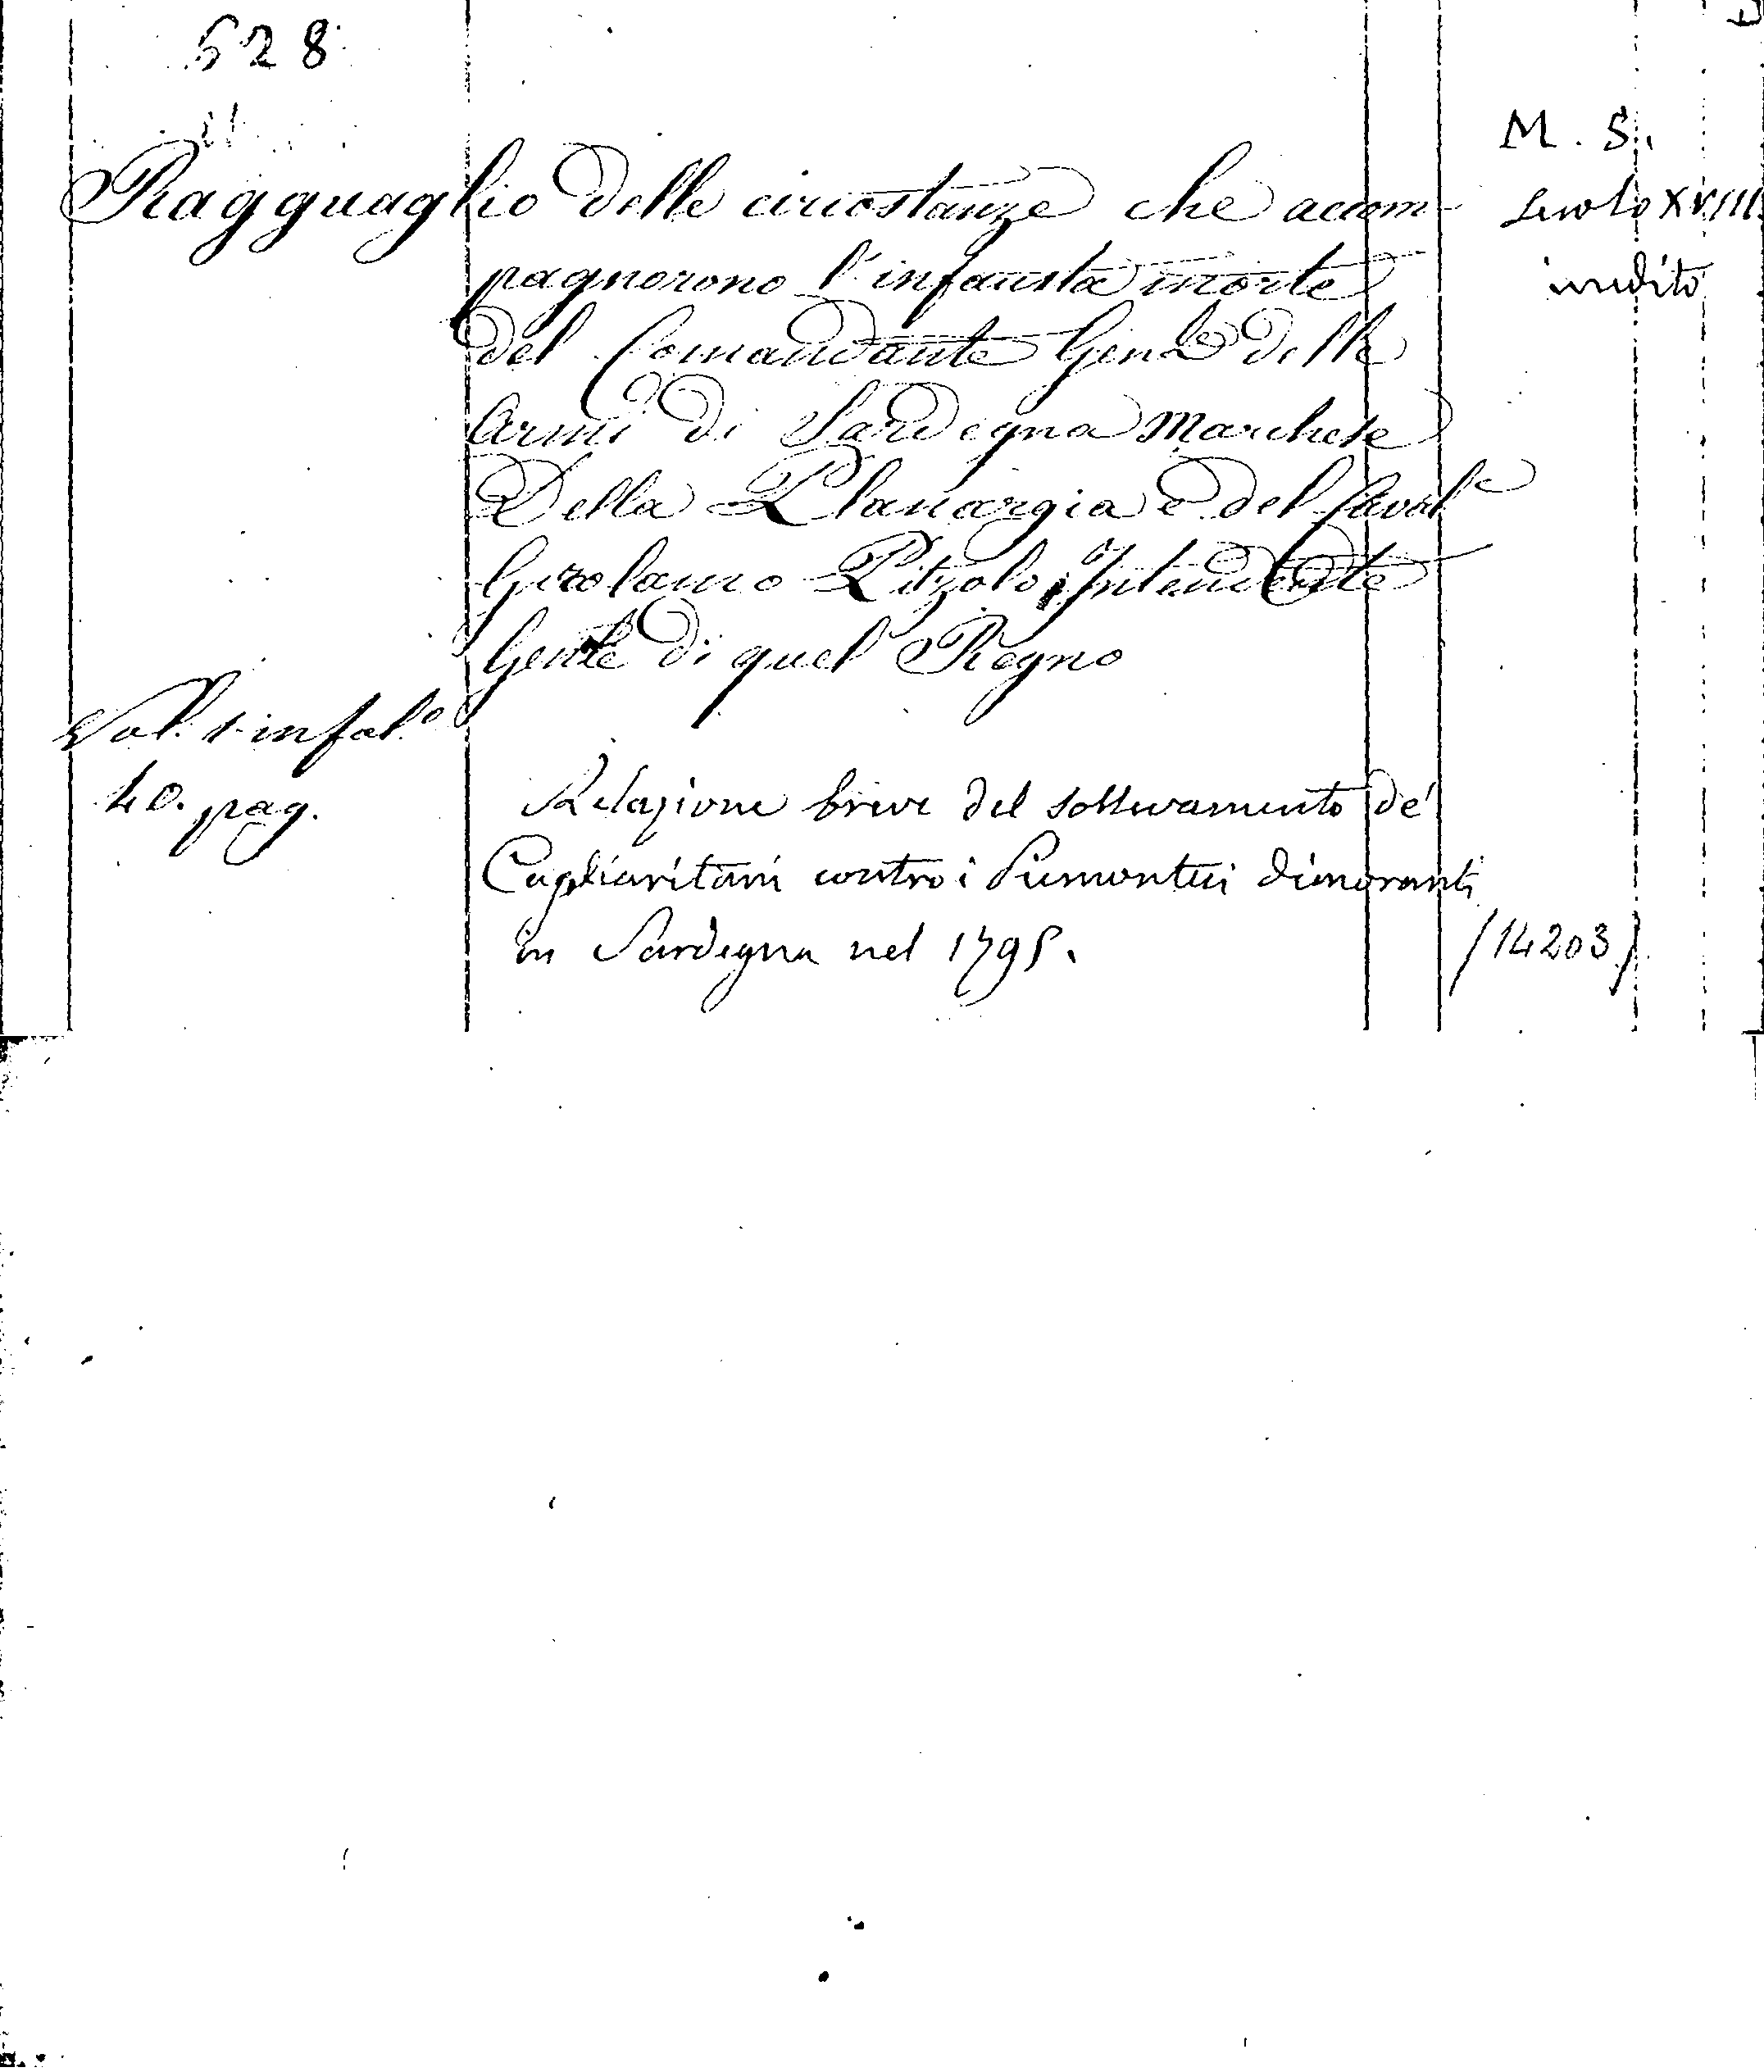 528
M. S.
Ragguaglio delle circostanze che accom-
secolo XVIII
pagnorono l'infausta morte
inedito
del Comandante Genle delle
Armi di Sardegna Marchese
Della Planargia e del Cavale
Girolamo Pitzolo, Intendente
Genle di quel Regno
Vol. 1. in fol.o
40. pag.
Relazione breve del sollevamento de'
Cagliaritani contro i Piemontesi dimoranti
in Sardegna nel 1795.
/14203/